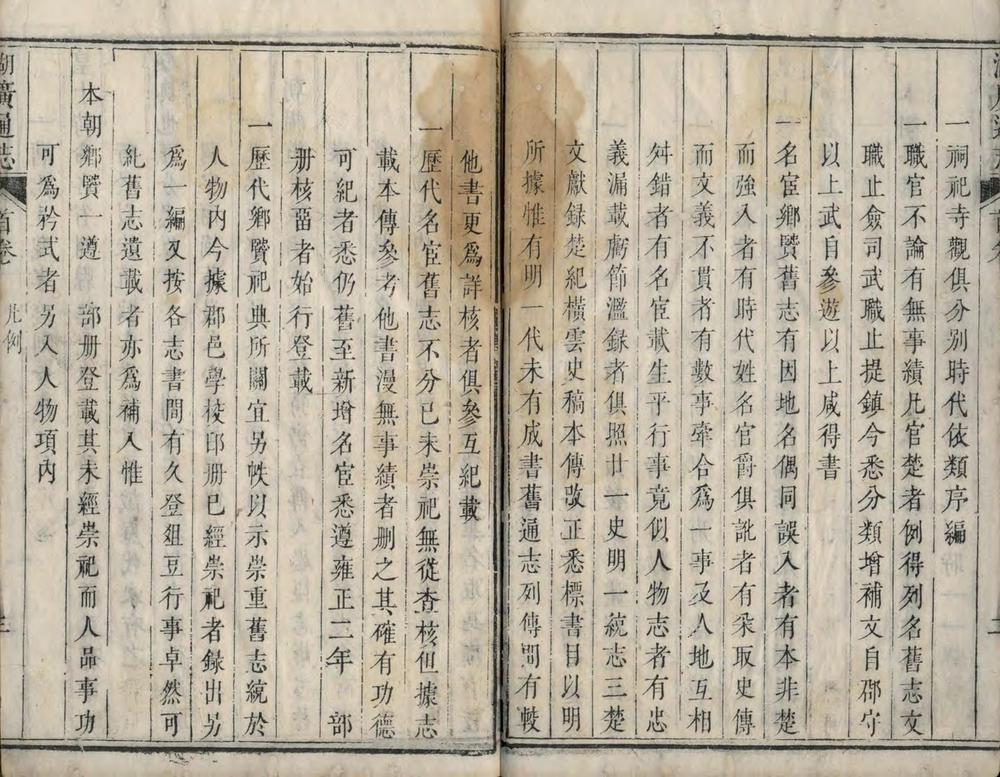 一祠祀寺觀俱分別時代依類序編
一職官不論有無事績凡官楚者例得列名舊志文
職止僉司武職止提鎮今悉分類增補文自郡守
以上武自參遊以上咸得書
一名宦鄉賢舊志有因地名偶同誤入者有本非楚
而強入者有時代姓名官爵俱訛者有采取史傳
而文義不貫者有數事牽合爲一事及人地互相
舛錯者有名宦載生平行事竟似人物志者有忠
義漏載虧節濫録者俱照廿一史明一統志三楚
文獻録楚紀橫雲史稿本傳改正悉標書目以明
所據惟有明一代未有成書舊通志列傳間有較
他書更爲詳核者俱參互紀載
一歷代名宦舊志不分已未崇祀無從查核但據志
載本傳參考他書漫無事績者刪之其確有功德
可紀者悉仍舊至新增名宦悉遵雍正二年 部
册核畱者始行登載
一歷代鄉賢祀典所關宜另帙以示崇重舊志統於
人物内今據郡邑學校印册已經崇祀者録出另
爲一編又按各志書間有久登俎豆行事卓然可
紀舊志遺載者亦爲補入惟
本朝鄉賢一遵 部册登載其未經崇祀而人品事功
可爲矜式者另入人物項内
湖廣通志 首卷 凡例 三